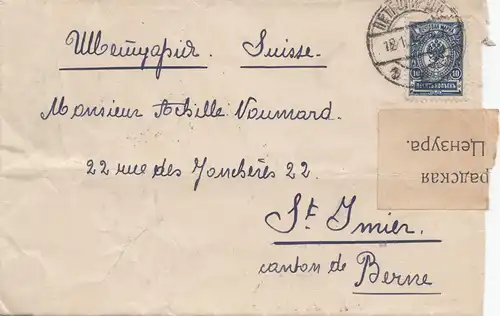 Швейцарія. Suisse.
10 10
ДЕСЯТЬ КОПѢЕКЪ
Monsieur Achille Voumard.
22 rue des Jonchères 22.
радская
Цензура.
St Imier.
canton de Berne